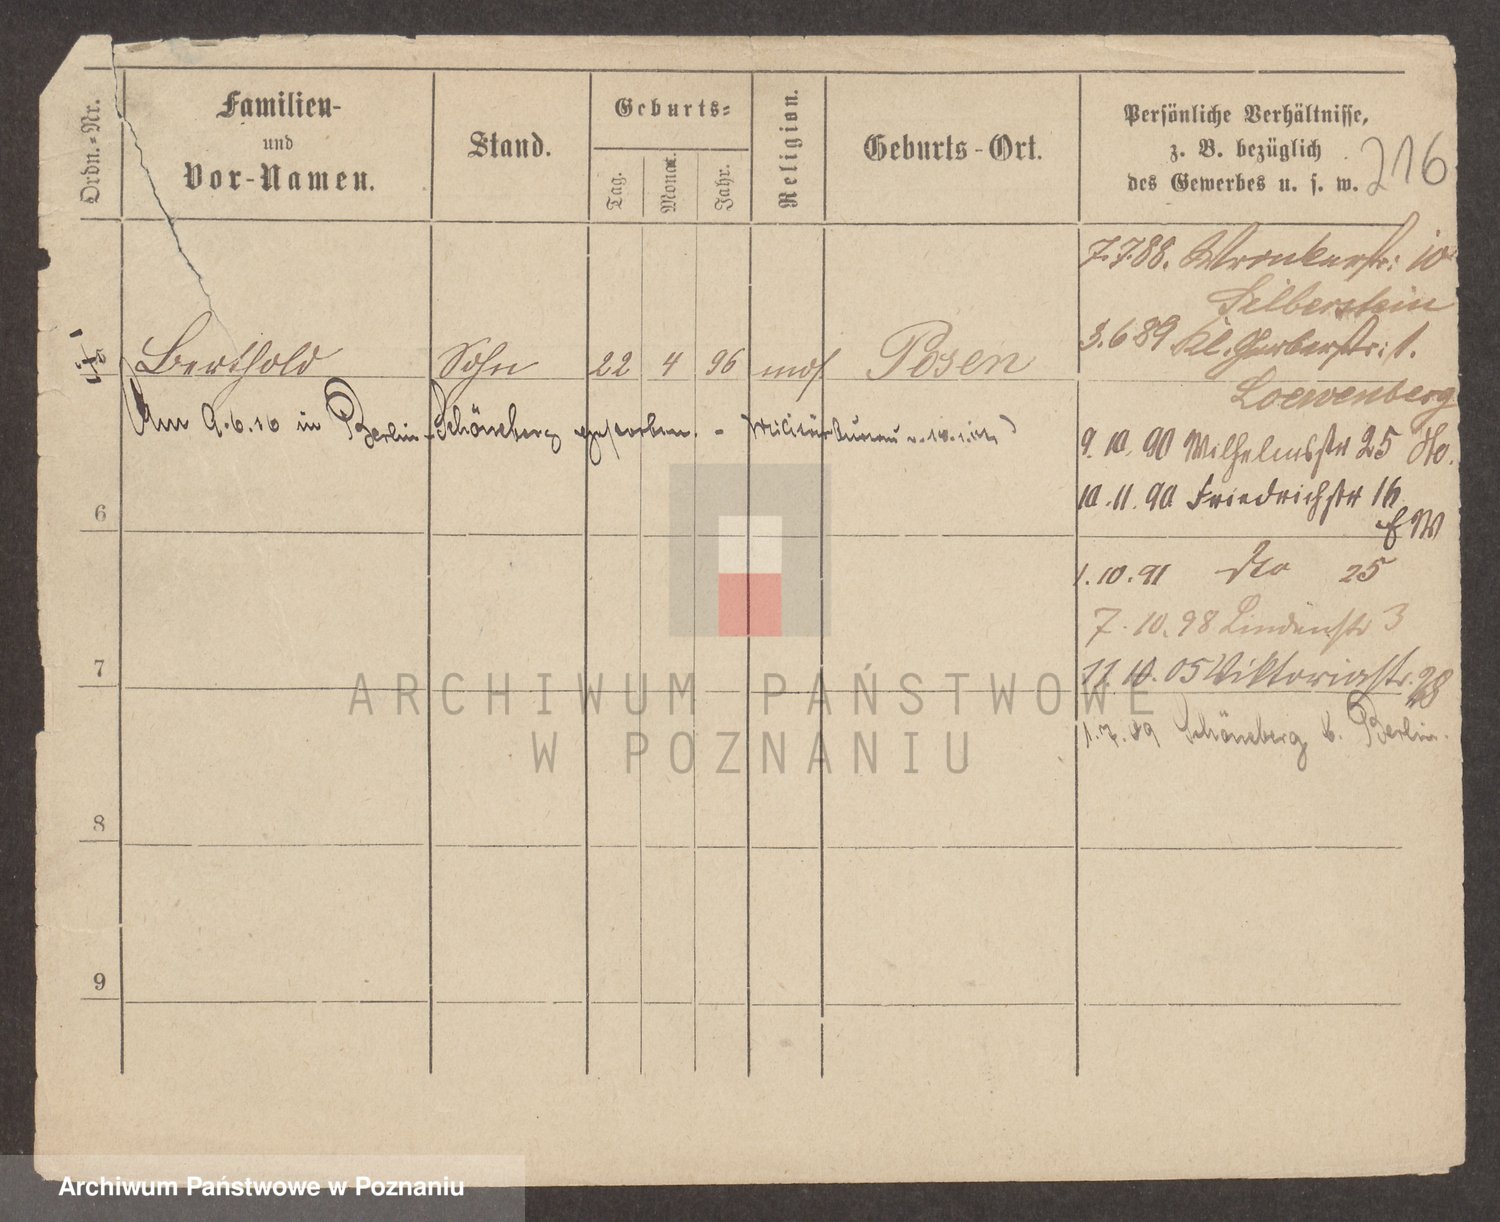 Ordn.-Nr.
Familien-
und
Vor-Namen.
Stand.
Geburts-
Tag.
Monat.
Jahr.
Religion.
Geburts-Ort.
Persönliche Verhältnisse,
z. B. bezüglich
des Gewerbes u. s. w.
216
7.7.88. Wronkerstr: 10
Silberstein
3.6 89 Kl. Gerberstr: 1.
Berthold Sohn 22 4 96 mos Posen
Loewenberg
Am 9.6.16 in Berlin-Schöneberg gestorben. - Militärbureau
9. 10. 90 Wilhelmsstr 25 Ho.
10. 11. 90 Friedrichstr 16
6
EW
1. 10. 91 dto 25
7. 10. 98 Lindenstr 3
7
11. 10. 05 Viktoriastr. 28
1. 7. 09 Schöneberg b. Berlin.
8
9
ARCHIWUM PAŃSTWOWE
W POZNANIU
Archiwum Państwowe w Poznaniu